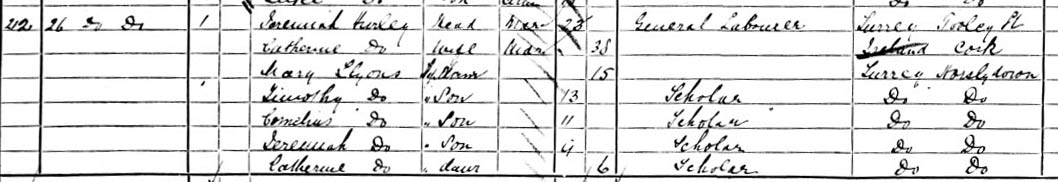 212 26 Do Do 1 Jeremiah Hurley Head Mar 23 General Labourer Surrey Tooley St
Catherine Do Wife Mar 38 Ireland Cork
Mary Llyons 15 Surrey Horslydown
Timothy Do " Son 13 Scholar Do Do
Cornelius Do " Son 11 Scholar Do Do
Jeremiah Do " Son 9 Scholar Do Do
Catherine Do " daur 6 Scholar Do Do